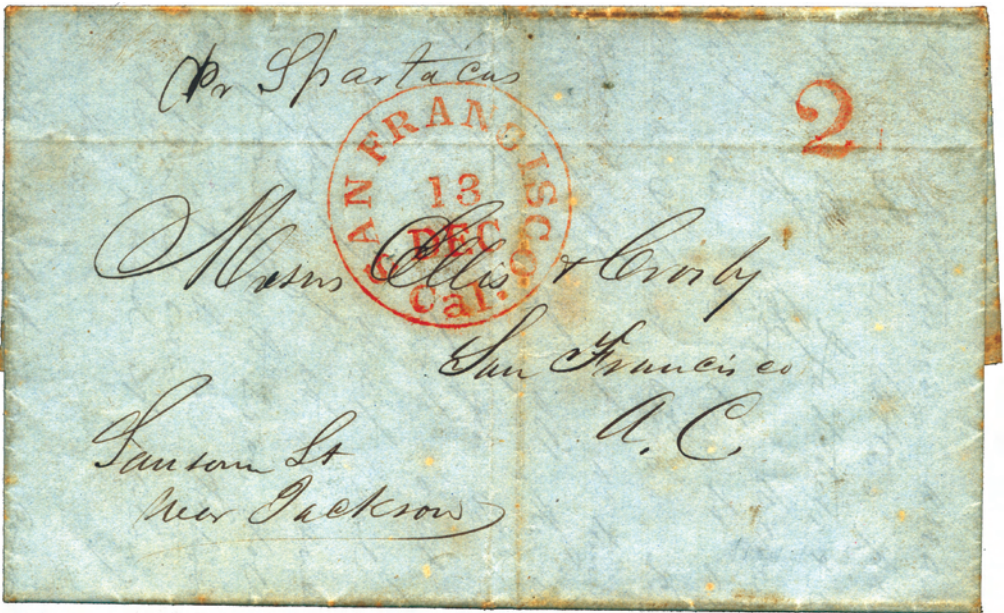 pr Spartacus
2
SAN FRANCISCO
13
DEC
Cal.
Messrs Ellis & Crosby
San Francisco
A. C
Sansom St
near Jackson